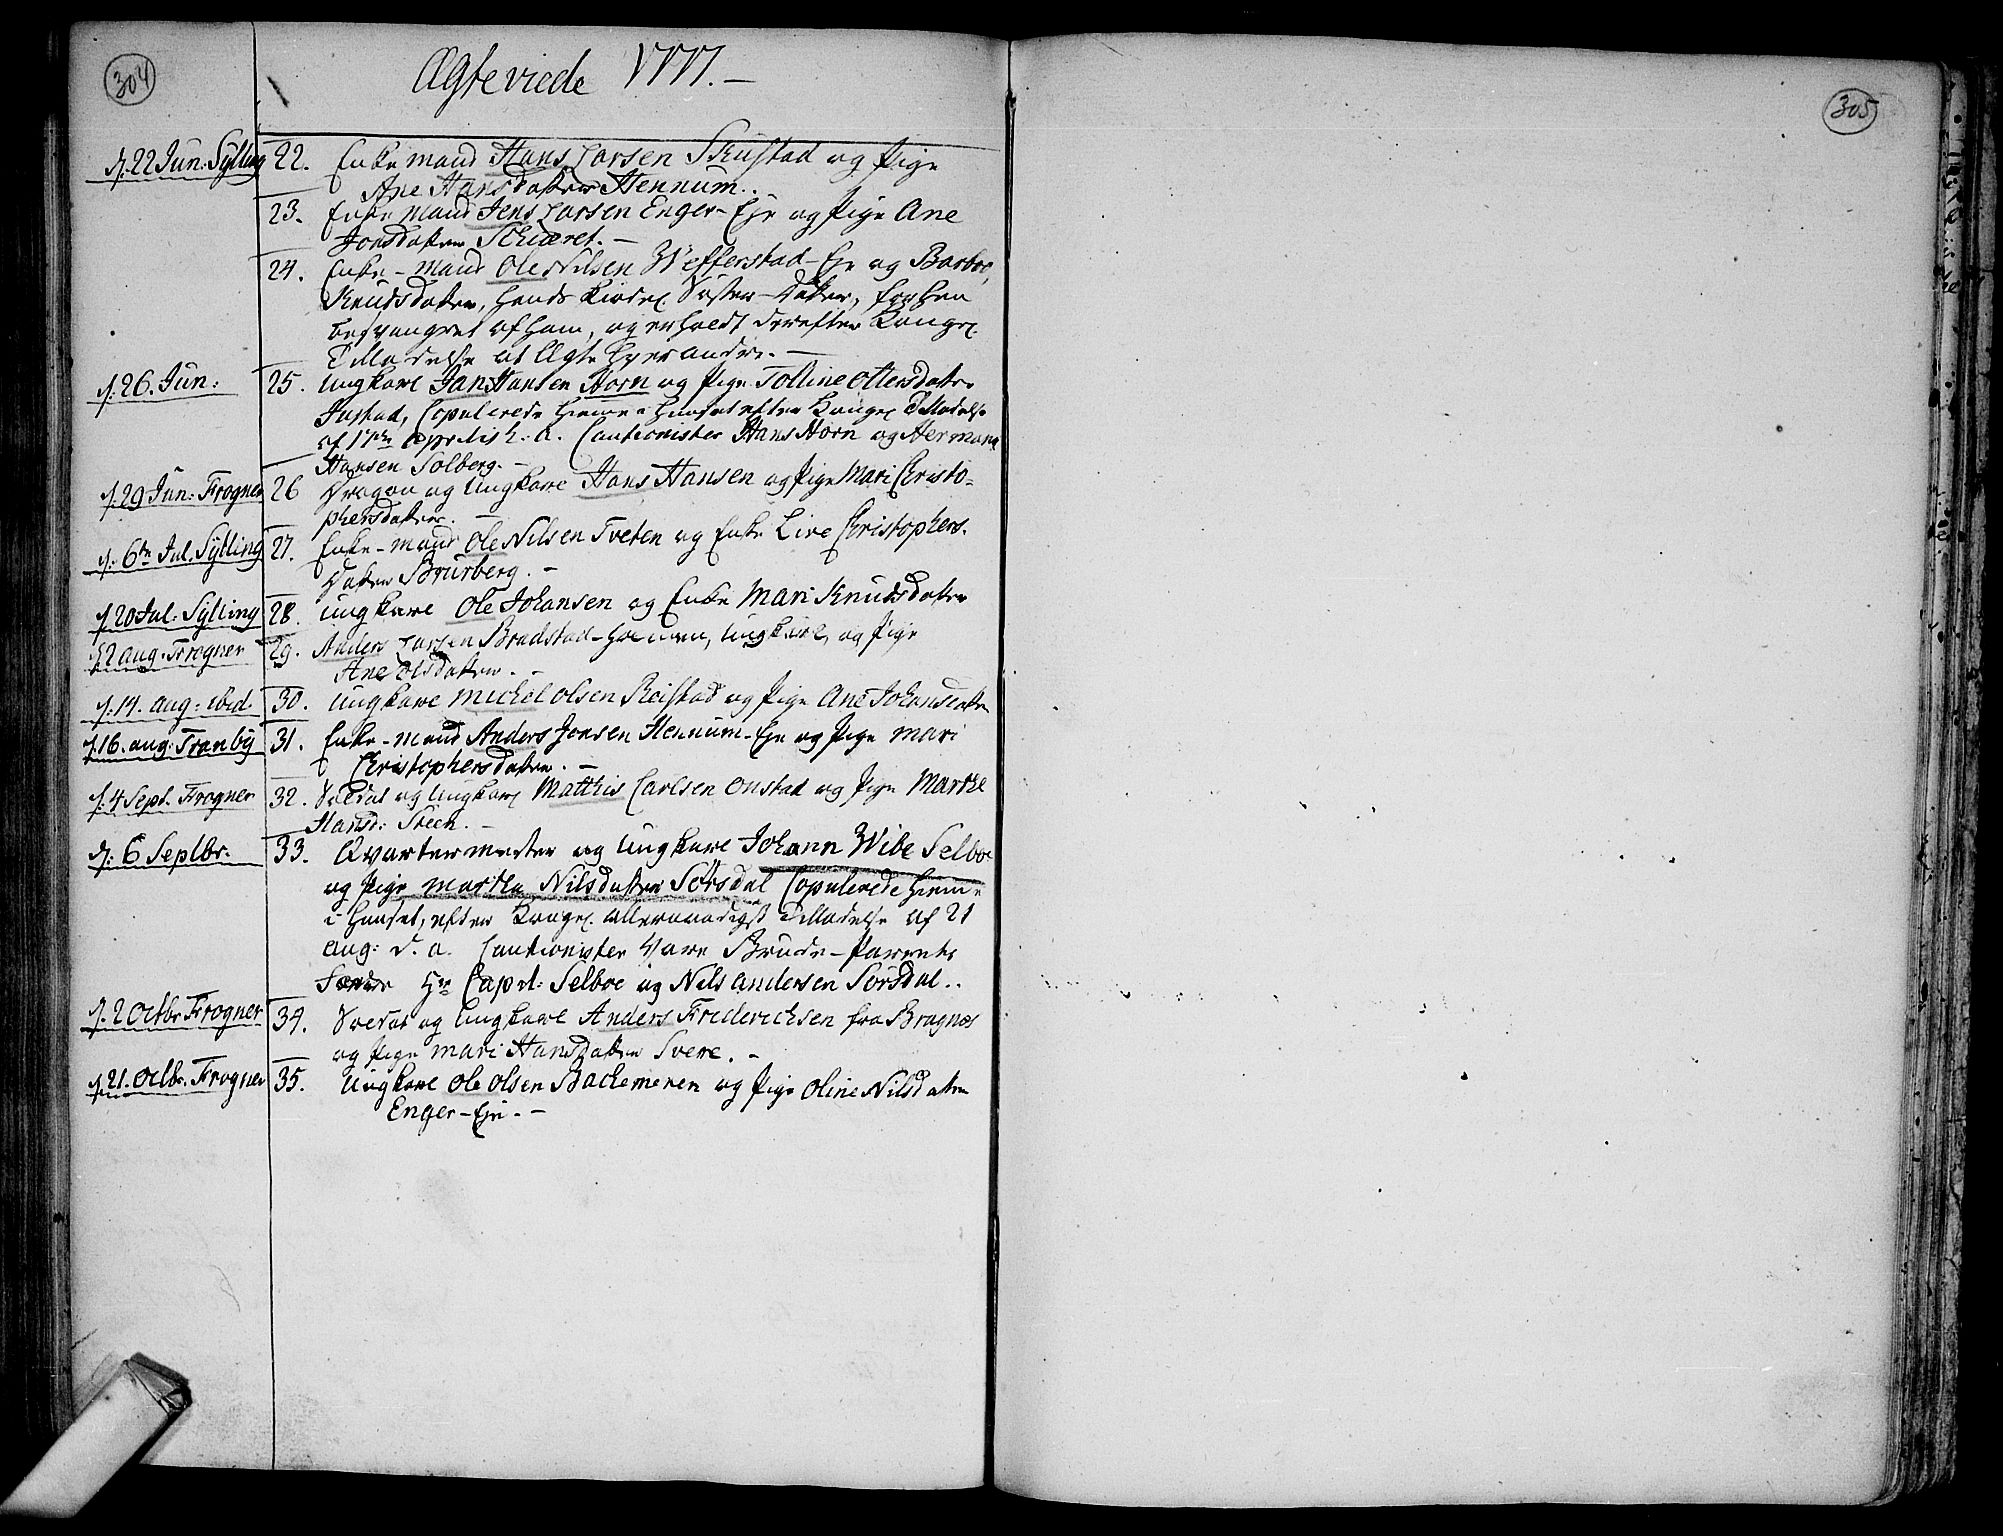 304
Ægteviede 1777. —
d: 22 Jun: Sylling 22. Enkemand Hans Larsen Skustad og Pige
Ane Hansdatter Hennum.
23. Enkemand Jens Larsen Enger-Eje og Pige Ane
Jonsdatter Schiæret. —
24. Enke-mand Ole Nilsen Wefferstad-Eje og Barbroe
Knudsdatter, hands Sal. Søster-datter, forhen
besvangret af ham, og erholdt derefter Kongel.
Tilladelse at Ægte hverandre. —
d: 26. Jun: 25. Ungkarl Jan Hansen Horn og Pige Tolline Ottersdatter
Justad, Copulerede hiemme i Huuset efter Kongel Tilladelse
af 17de April h: a. Cautionister Hans Horn og Herman
Hansen Solberg. —
d: 29 Jun: Frogner 26 Dragon og Ungkarl Hans Hansen og Pige Mari Christo-
phersdatter. —
d: 6te Jul. Sylling 27. Enke-mand Ole Nilsen Tveten og Enke Live Christophers-
datter Brurberg. —
d. 20 Jul: Sylling 28. Ungkarl Ole Johansen og Enke Mari Knudsdatter
d. 2 Aug: Frogner 29. Anders Larsen Bradstad-Hoennen, Ungkarl, og Pige
Ane Olsdatter. —
d: 14. Aug: ibid. 30. Ungkarl Michel Olsen Reistad og Pige Ane Johansdatter
d. 16. Aug: Tranby 31. Enke-mand Anders Jonsen Hennum-Eje og Pige Mari
Christophersdatter. —
d: 4 Sept. Frogner 32. Soldat og Ungkarl Matthis Carlsen Onstad og Pige Marthe
Hansd: Steen. —
d: 6 Septbr. 33. Qvartermester og Ungkarl Johann Wibe Selboe
og Pige Martha Nilsdatter Sørsdal Copulerede hiemme
i Huuset, efter Kongel. allernaadigst Tilladelse af 21
Aug: d. a. Cautionister Vare Brude-Parrets
Fædre Hr Capt: Selboe og Nils Andersen Sørsdal. .
d. 2 Octbr Frogner 34. Soldat og Ungkarl Anders Friderichsen fra Bragnæs
og Pige Mari Hansdatter Svere. —
d. 21. Octbr. Frogner 35. Ungkarl Ole Olsen Bachemeren og Pige Oline Nilsdatter
Enger-Eje. —
305